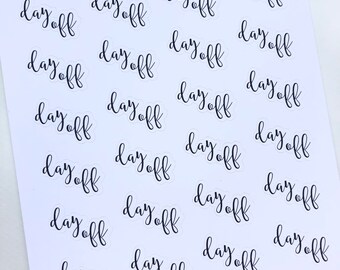 day off day off off
day off day off day off day off
day off day off day off day off
day off day off day off day off
day off day off day off day off
day day off day off day off